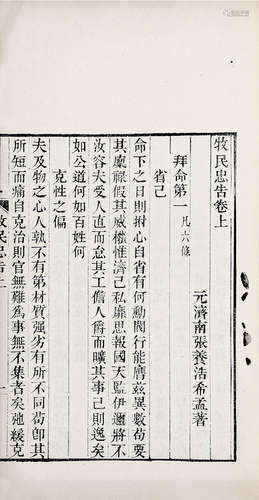 牧民忠告卷上
元濟南張養浩希孟著
拜命第一凡六條
省己
命下之日則拊心自省有何勳閥行能膺茲異數苟要
其廩祿假其威權惟濟己私靡思報國天監伊邇將不
汝容夫受人直而怠其工儋人爵而曠其事己則逸矣
如公道何如百姓何
克性之偏
夫及物之心人孰不有第材質强劣有所不同苟卽其
所短而痛自克治則官無難爲事無不集者矣弛緩克
牧民忠告上
一